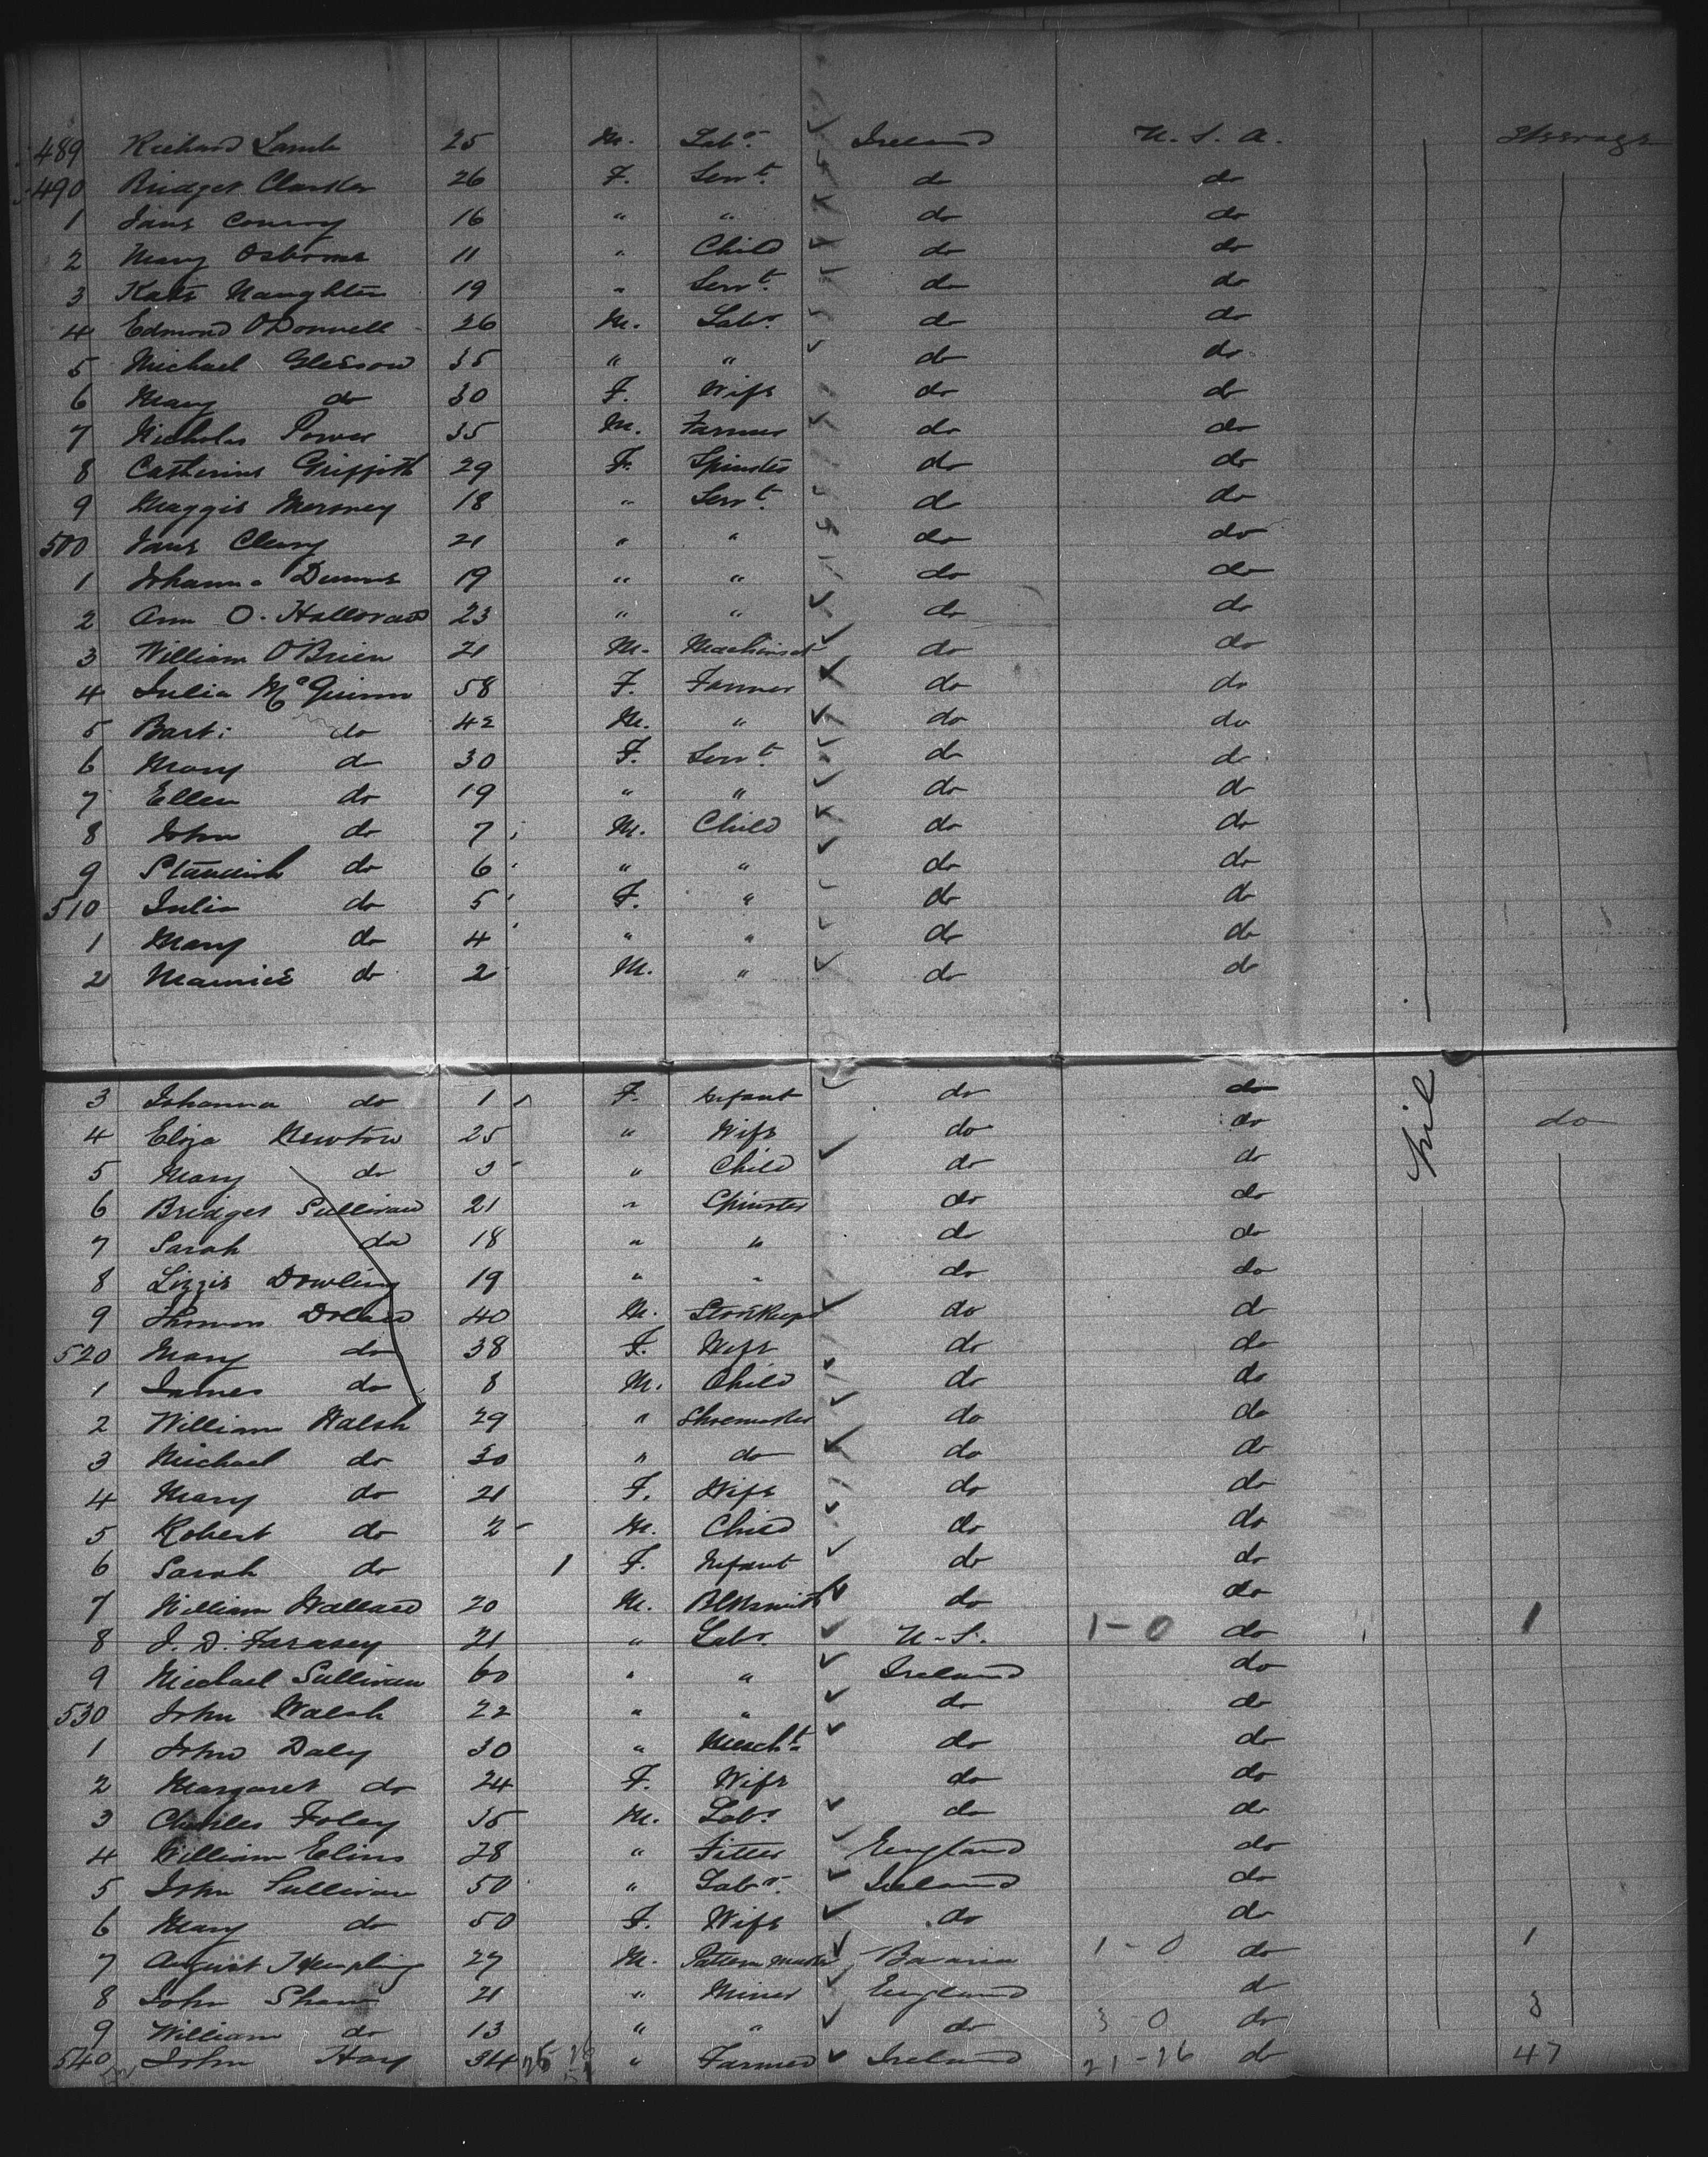 489 Richard Lamb 25 M. Labr. Ireland U. S. A. Steerage
490 Bridget 26 F. Servt. do do
1 Jane Conroy 16 " " do do
2 Mary Osborne 11 " Child do do
3 Kate Naughten 19 " Servt. do do
4 Edmond O'Donnell 26 M. Labr. do do
5 Michael Gleeson 35 " " do do
6 Mary do 30 F. Wife do do
7 Nicholas Power 35 M. Farmer do do
8 Catherine Griffith 29 F. Spinster do do
9 Maggie 18 " Servt. do do
500 Jane Cleary 21 " " do do
1 Johanna 19 " " do do
2 Ann O. Halloran 23 " " do do
3 William O'Brien 21 M. Machinist do do
4 Julia McGuinn 58 F. Farmer do do
5 Bart: do 42 M. " do do
6 Mary do 30 F. Servt. do do
7 Ellen do 19 " " do do
8 John do 7 M. Child do do
9 do 6 " " do do
510 Julia do 5 F. " do do
1 Mary do 4 " " do do
2 Maurice do 2 M. " do do
3 Johanna do 1 F. Infant do do
4 Eliza Newton 25 " Wife do do Nil do
5 Mary do 3 " Child do do
6 Bridget Sullivan 21 " Spinster do do
7 Sarah do 18 " " do do
8 Lizzie Dowling 19 " " do do
9 Thomas Dollard 40 M. Storekeeper do do
520 Mary do 38 F. Wife do do
1 James do 8 M. Child do do
2 William Walsh 29 " Shoemaker do do
3 Michael do 30 " do do do
4 Mary do 21 F. Wife do do
5 Robert do 2 M. Child do do
6 Sarah do 1 F. Infant do do
7 William Wallace 20 M. Blksmith do do
8 J. D. 21 " Labr. U. S. 1-0 do 1
9 Michael Sullivan 60 " " Ireland do
530 John Walsh 22 " " do do
1 John Daly 30 " Mercht. do do
2 Margaret do 24 F. Wife do do
3 Charles Foley 35 M. Labr. do do
4 William 28 " Fitter England do
5 John Sullivan 50 " Labr. Ireland do
6 Mary do 50 F. Wife do do
7 August 27 M. Pattern maker Bavaria 1-0 do 1
8 John Shaw 21 " Miner England do
9 William do 13 " " do 3 0 do 3
540 John Hay 34 " Farmer Ireland 21-26 do 47